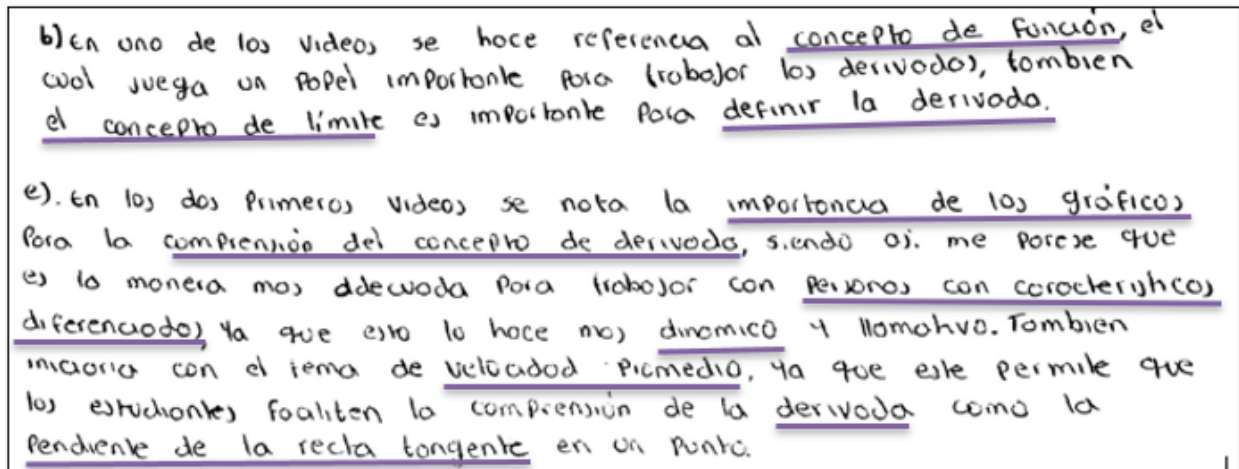 b) En uno de los videos se hace referencia al concepto de función, el
cual juega un papel importante para trabajar las derivadas, tambien
el concepto de límite es importante para definir la derivada.
e). En los dos primeros videos se nota la importancia de los gráficos
para la comprensión del concepto de derivada, siendo asi me parese que
es la manera mas adecuada para trabajar con personas con caracteristicas
diferenciadas, ya que esto lo hace mas dinamico y llamativo. Tambien
iniciaria con el tema de velocidad promedio, ya que este permite que
los estudiantes focaliten la comprensión de la derivada como la
pendiente de la recta tangente en un punto.